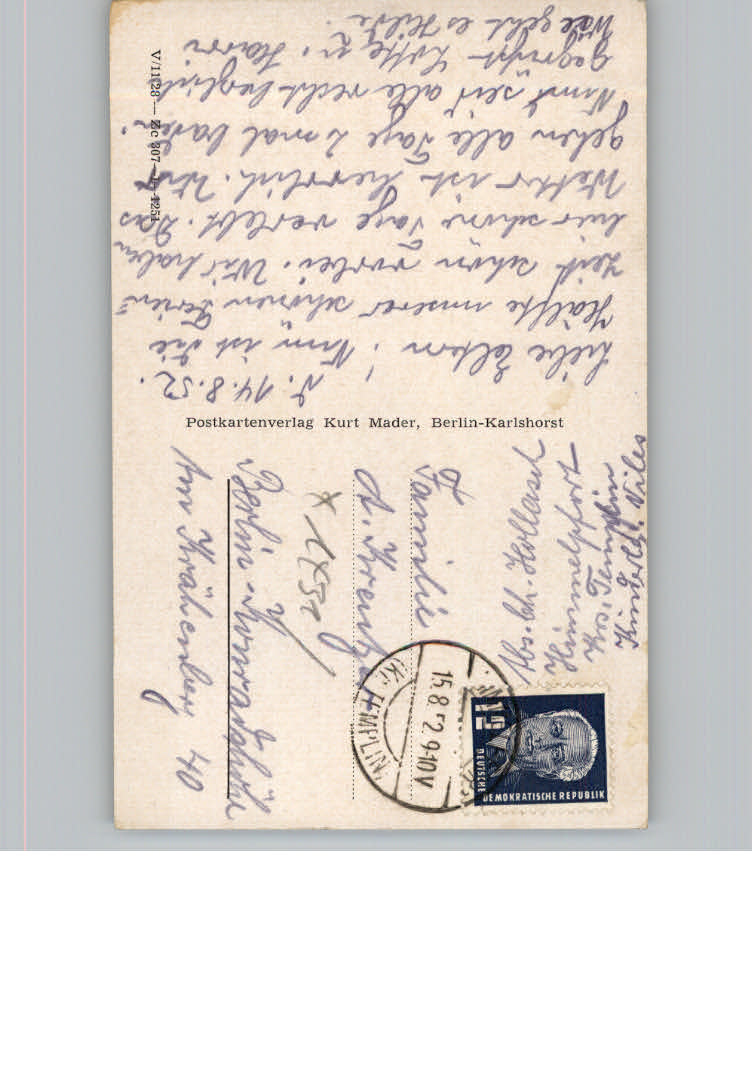 14.8.52.
Liebe Eltern! Nun ist die
Hälfte unserer schönen Ferien
zeit schon vorbei. Wir haben
hier schöne Tage verlebt. Das
Wetter ist herrlich. Wir
gehen alle Tage 2 mal baden.
Nun seid alle recht herzlich
gegrüßt Lotte u.
Wie geht es Hilde.
V/11/28 — Zc 307
Postkartenverlag Kurt Mader, Berlin-Karlshorst
Abs. Ch.
Himmelpfort
Krs. Templin
Familie
A.
Berlin-
Am Krähenberg 40
(Kr. TEMPLIN)
15.8.52.9-10V
12
DEUTSCHE
DEMOKRATISCHE REPUBLIK